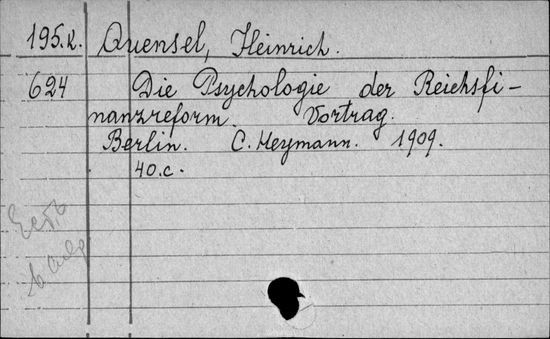 195.k. Quensel, Heinrich.
624 Die Psychologie der Reichsfi-
nanzreform. Vortrag.
Berlin. C. Heymann. 1909.
40.c.
Есть
в